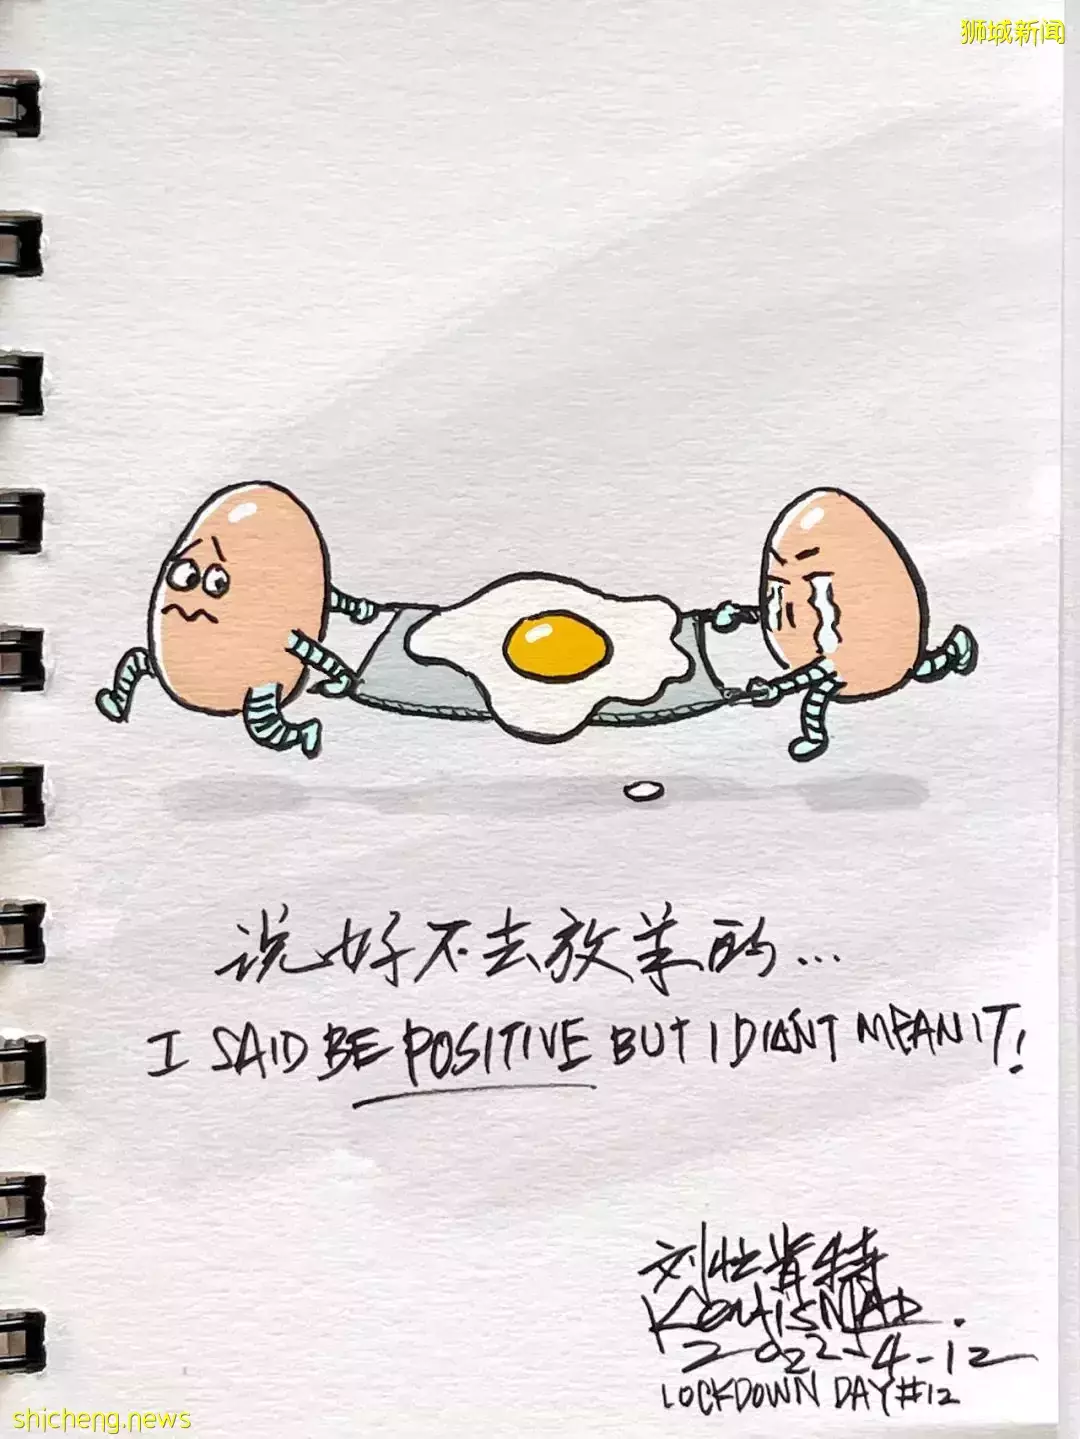 狮城新闻
说好不去放羊的...
I SAID BE POSITIVE BUT I DIDN'T MEAN IT!
刘壮肯特
KentisMAD.
2022-4-12
LOCKDOWN DAY #12
shicheng.news